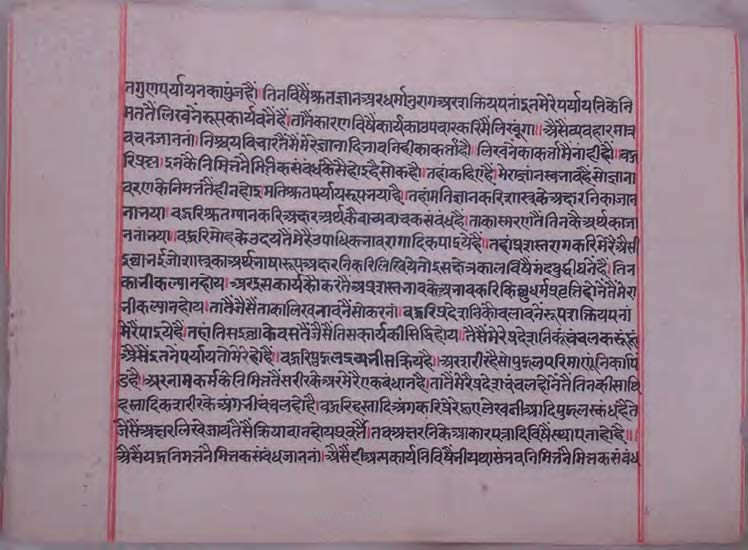 नगुणपर्यायनकापुंजहैं।तिनविषैंश्रुतज्ञानअरधर्मानुरागअरशक्तियपनांइनमेरेपर्यायनिकेनि
मततैंलिखनेंरूपकार्यबनेंहैं।तातैंकारणविषैंकार्यकाउपचारकरिमैंलिखूंगा।।अैसेंव्यवहारमात्र
वचनजाननां।निश्चयविचारतैंमैंमेरेज्ञानादिभावनिहीकाकर्ताहौं।लिखनेंकाकर्तामैंनांहीहौं।बहु
रिप्रश्न।इनकेनिमित्तनैमित्तिकसंबंधकैसेंहोइहैसोकहौ।तहांकहिएहैं।मेराज्ञानस्वभावहैसोज्ञाना
वरणकेनिमत्ततैंहीनहोइमतिश्रुतपर्यायरूपभयाहै।तहांमतिज्ञानकरिशास्त्रकेअक्षरनिकाजान
नाभया।बहुरिश्रुतग्यानकरिअक्षरअर्थकैवाच्यवाचकसंबंधहै।ताकास्मरणतैंतिनकैअर्थकाजा
ननांभया।।बहुरिमोहकेउदयतैंमेरेउपाधिकभावरागादिकपाइयेहैं।।तहांप्रशस्तरागकरिमेरेअैसी
इच्छाभईजोशास्त्रकाअर्थभाषारूपअक्षरनिकरिलिखियेतोइसक्षेत्रकालविषैंमंदबुद्धीघनेंहैं।तिन
कानीकल्यानहोय।अरइसकार्यकौंकरतैंअप्रशस्तभावकेअभावकरिकिछुधर्मप्रवृत्तिहोनेंतैंमेरा
नीकल्यानहोय।तातैंजैसेंताकालिखनाबनैंसोकरनां।बहुरिप्रदेशनिकौंचलावनेंरूपशक्तियपनां
मेरेंपाइयेहै।तहांतिसइच्छाकेवसतैंजैसेंतिसकार्यकीसिद्धिहोय।तैसेंमेरेप्रदेशनिकूंचंचलकरूंहूं
अैसेंइतनेंपर्यायतोमेरेहोहैं।बहुरिपुद्गलद्रव्यभीसक्रियहै।अरशरीरहैसोपुद्गलपरिमाणूंनिकापिं
डहै।अरनामकर्मकेनिमित्ततैंसरीरकेअरमेरेएकबंधानहै।तातैंमेरेप्रदेशचंचलहोनेंतैंतिनहीसाथि
हस्तादिकशरीरकेअंगभीचंचलहोहै।बहुरिहस्तादिअंगकरिप्रेरेहुएलेखनीआदिपुद्गलस्कंधहैंते
जैसेंअक्षरलिखेजायतैसेंक्रियावानहोयप्रवर्तैं।तबअक्षरनिकेआकारपत्रादिविषैंस्थापनाहोहै।।
अैसेंयहुनिमत्तनैमित्तकसंबंधजाननां।अैसेंहीअन्यकार्यनिविषैंभीयथासंभवनिमित्तनैमित्तकसंबंध